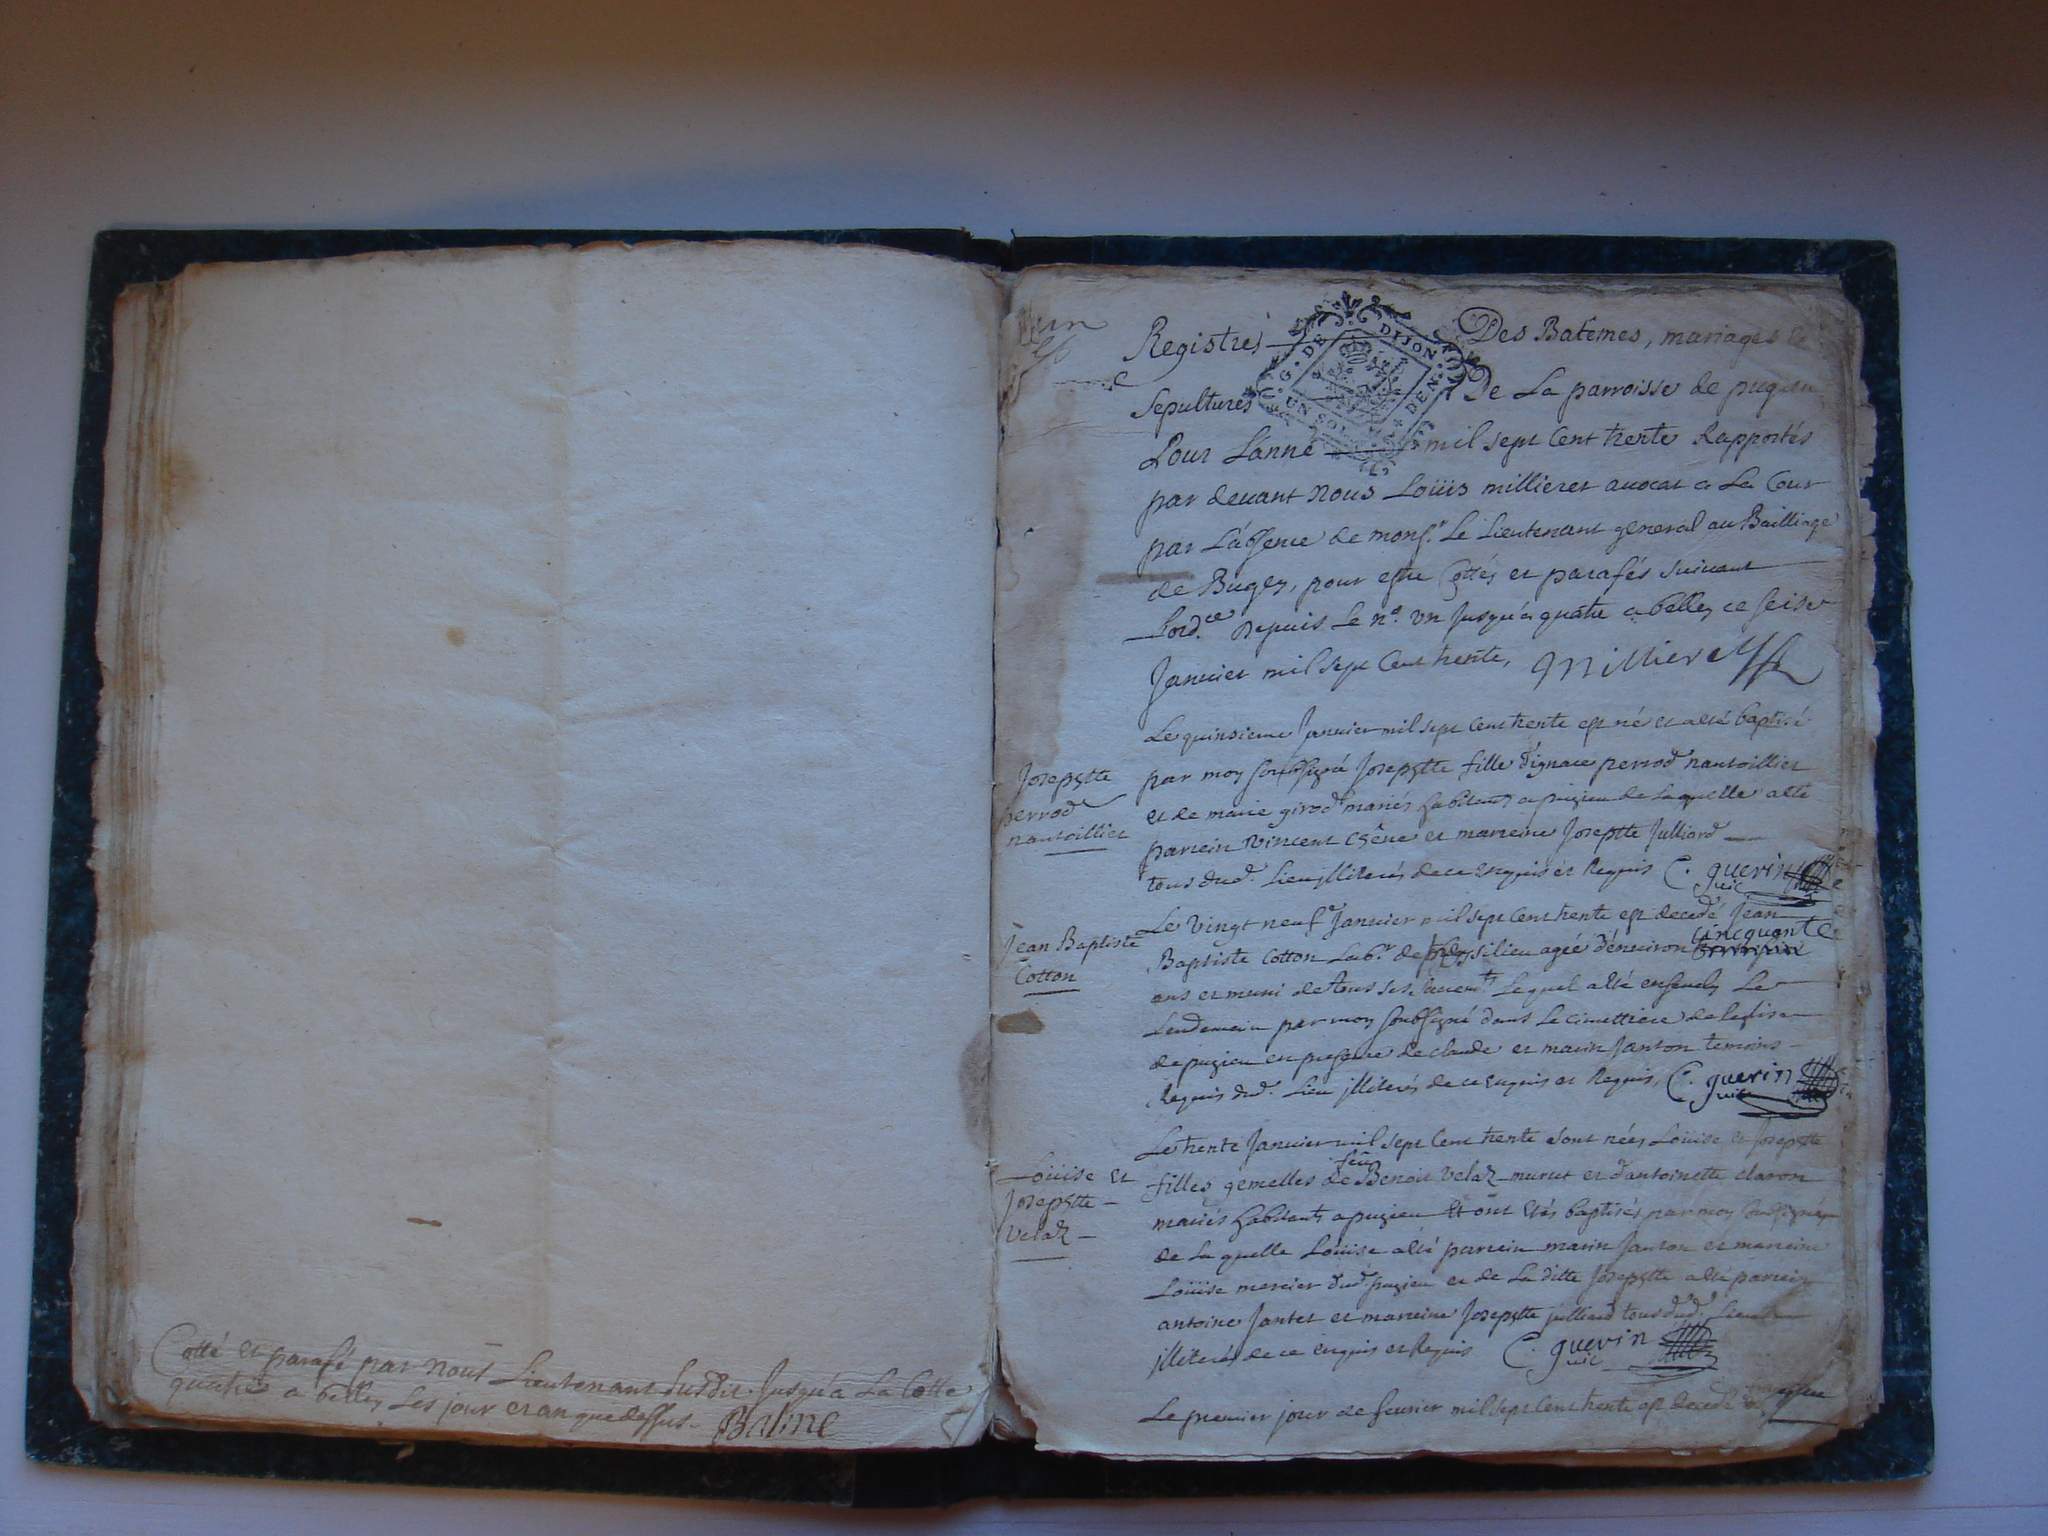 Cotté et parafé par nous Lieutenant susdit Jusqu'a La Cotte
quatre a belley Les jour et an que dessus. Balme
Registres Des Batemes, mariages &
G. DE DIJON
UN SOL DEN
Sepultures De La parroisse de pugieu
Pour L'anné mil sept Cent trente Rapportés
par devant nous Loüis millieret avocat a La Cour
par L'absence de mons.r Le Lieutenant general au Bailliage
de Bugey, pour estre Cottés et parafés suivant
l'ord.ce Depuis Le n.o un Jusqu'a quatre a belley ce seise
Janvier mil sept Cent trente, Millieret
Josephtte
perrod
nantoillier
Le quinsieme Janvier mil sept Cent trente est né et a eté baptisé
par moy soubsigné Josephtte fille d'ignace perrod nantoillier
et de marie girod mariés habitants a pugieu de La quelle a eté
parrein vincent Chêne et marreine Josephtte Julliard
tous dud. Lieu illiterés de ce enquis et Requis C. guerin
vic
Jean Baptiste
Cotton
Le vingt neuf Janvier mil sept Cent trente est decedé Jean
Baptiste Cotton Lab.r de silieu ageé d'environ Cincquante
ans et muni de tous ses sacrem.ts Le quel a eté enseveli Le
Lendemain par moy soubsigné dans Le cimettiere de leglise
de pugieu en presence de claude et marin Janton temoins
Requis dud. Lieu illiterés de ce enquis et Requis, C. guerin
vic
Loüise et
Josephtte
velaz
Le trente Janvier mil sept Cent trente sont nées Loüise et Josephtte
filles gemelles de feu Benoit velaz muret et d'antoinette claron
mariés habitants a pugieu et ont etés baptisés par moy soubsigné
de La quelle Loüise a eté parrein marin Janton et marreine
Loüise mercier dud. pugieu et de La ditte Josephtte a eté parrein
antoine Jantet et marreine Josephtte julliard tous dud. Lieu
illiterés de ce enquis et Requis C. guerin
vic
Le premier jour de fevrier mil sept Cent trente est decedé